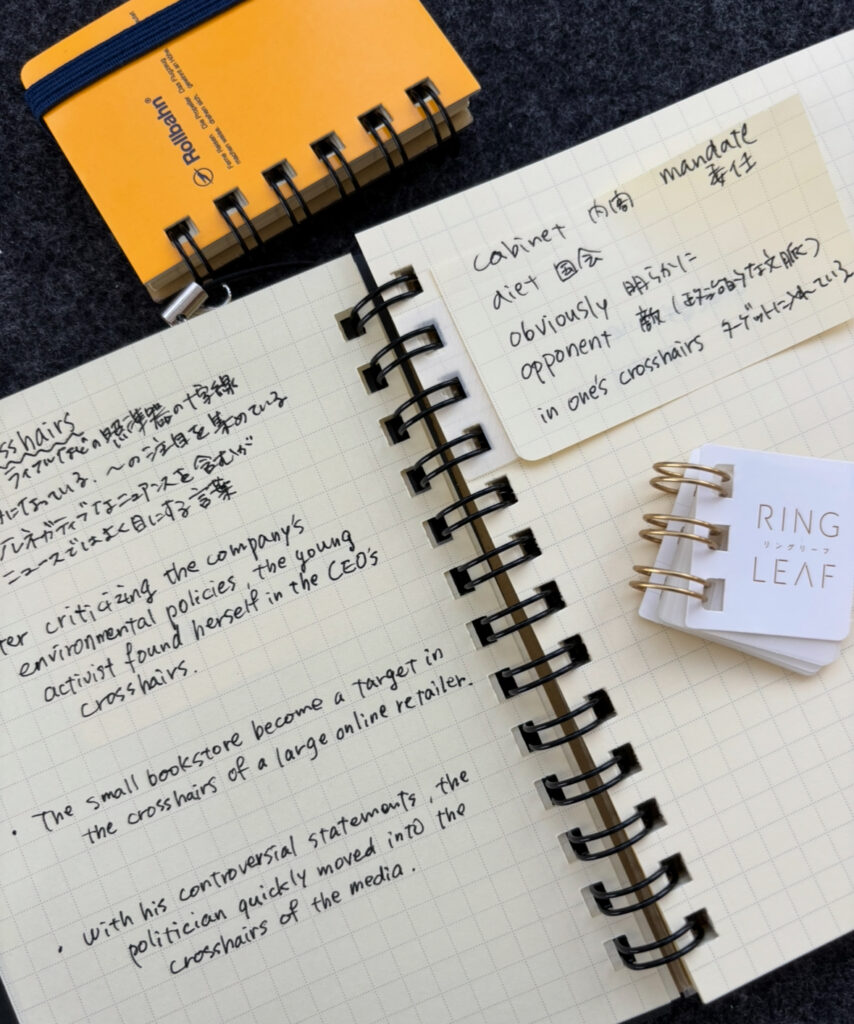 Rollbahn®
cabinet 内閣 mandate
委任
diet 国会
obviously 明らかに
opponent 敵(政治的な文脈)
in one's crosshairs ターゲットに入れている
RING
リングリーフ
LEAF
sshairs
ライフルなどの照準器の十字線
になっている、〜の注目を集めている
ネガティブなニュアンスを含むが
ニュースではよく目にする言葉
ter criticizing the company's
environmental policies, the young
activist found herself in the CEO's
crosshairs.
・The small bookstore become a target in
the crosshairs of a large online retailer.
・with his controversial statements, the
politician quickly moved into the
crosshairs of the media.